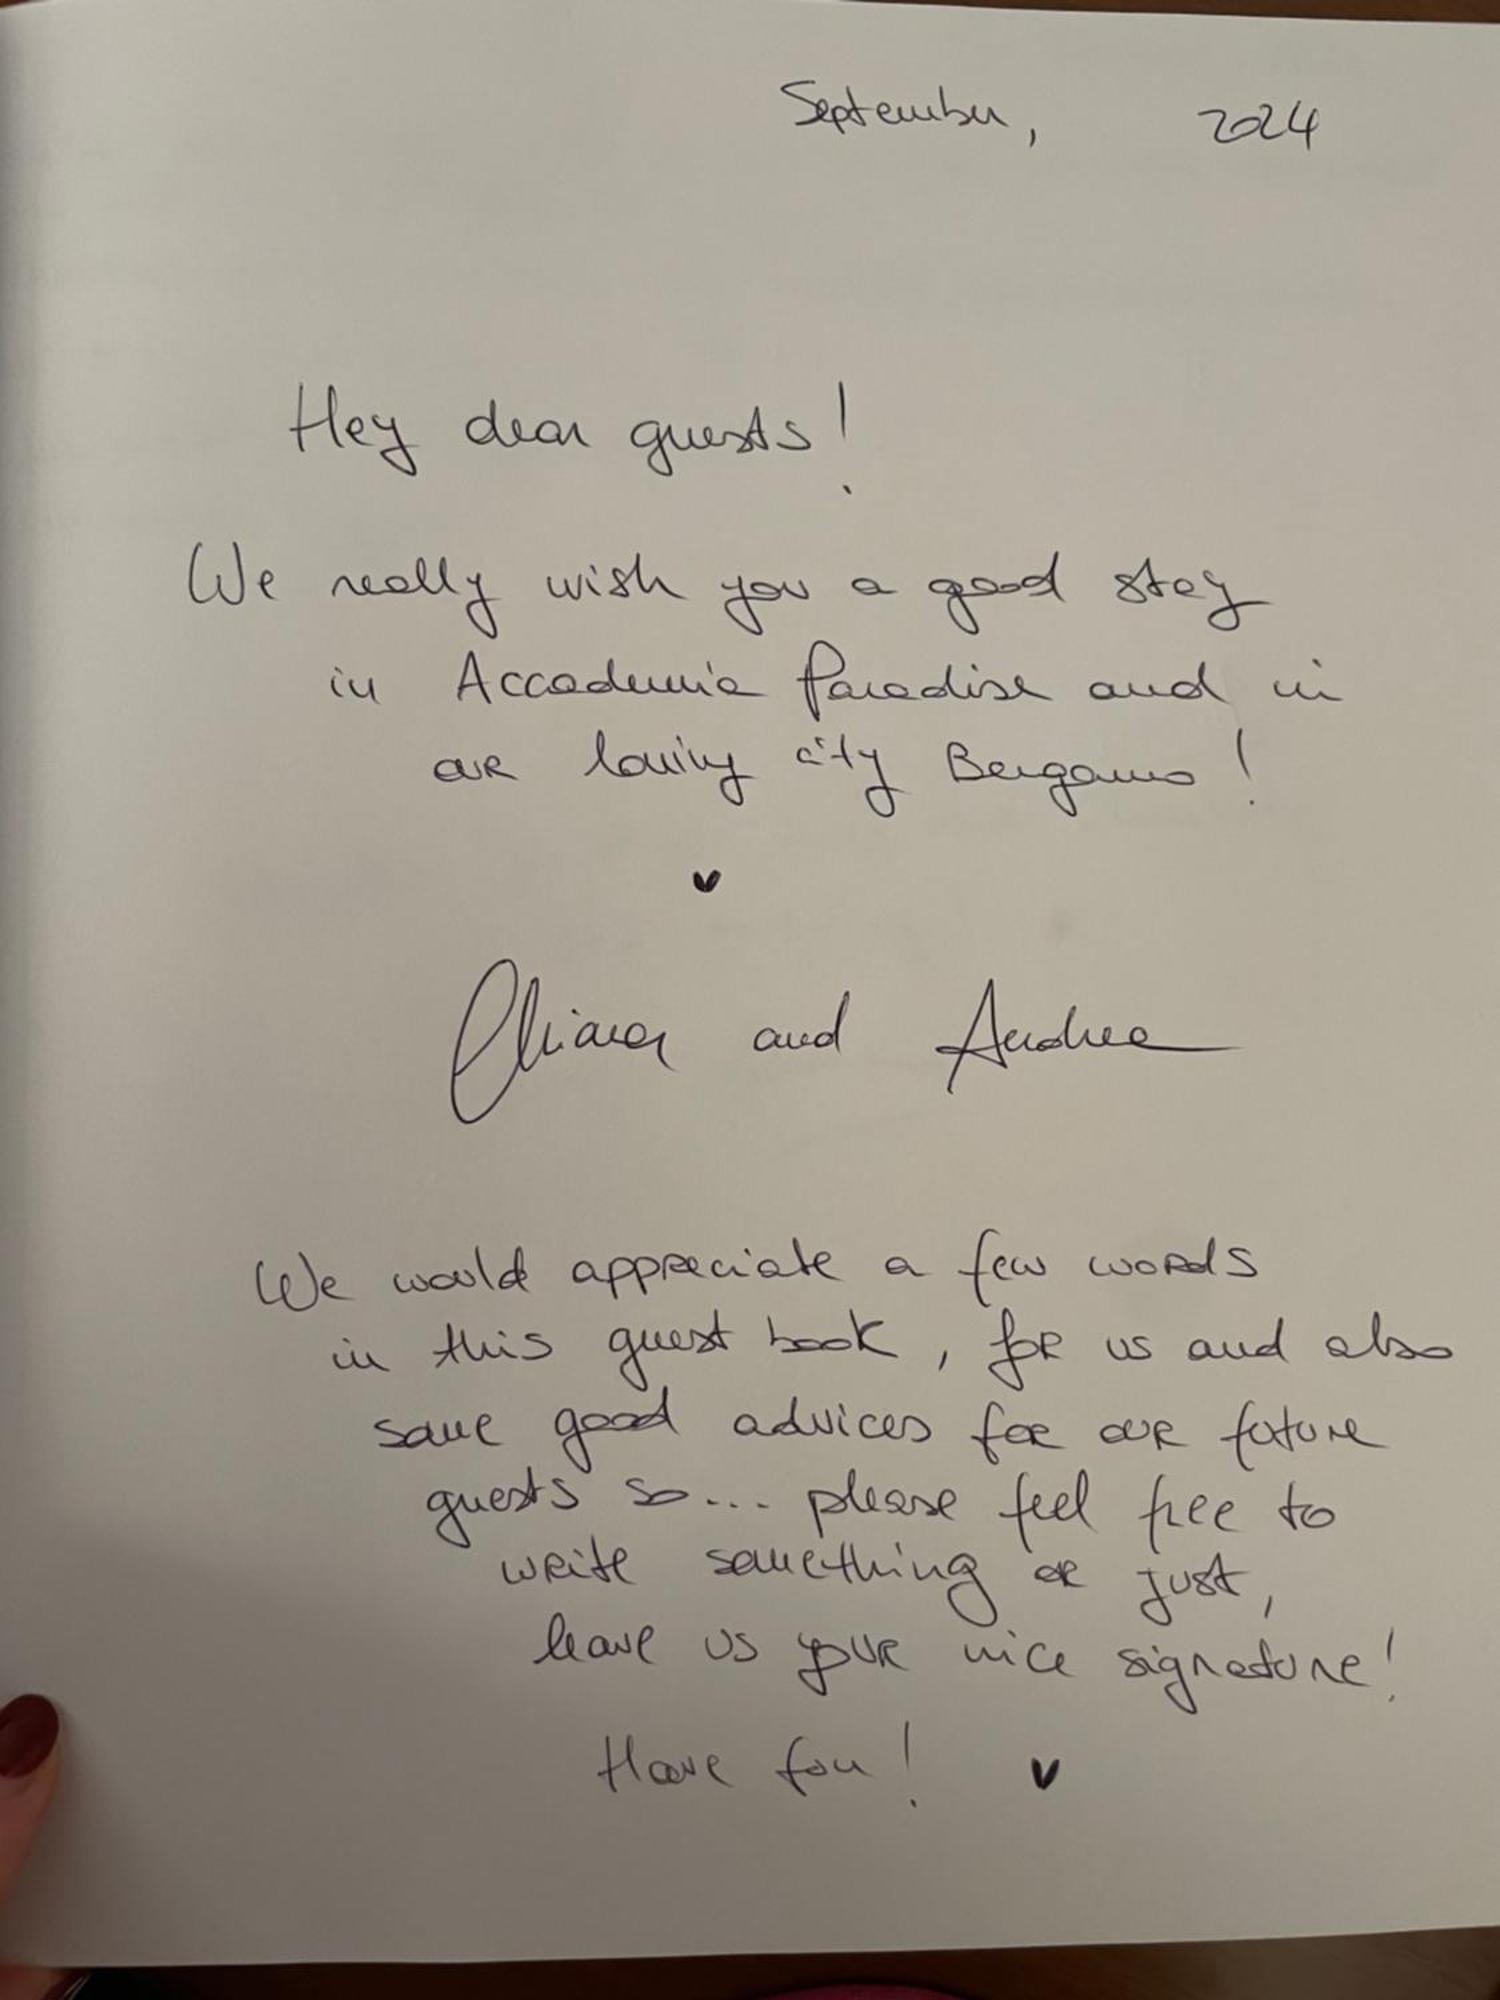 September, 2024
Hey dear guests!
We really wish you a good stay
in Accademia Paradise and in
our loving city Bergamo!
♥
Chiara and Andrea
We would appreciate a few words
in this guest book, for us and also
some good advices for our future
guests so... please feel free to
write something or just,
leave us your nice signature!
Have fun! ♥